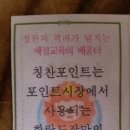 칭찬과 격려가 넘치는
예절교육의 배움터
칭찬포인트는
포인트시장에서
사용되는